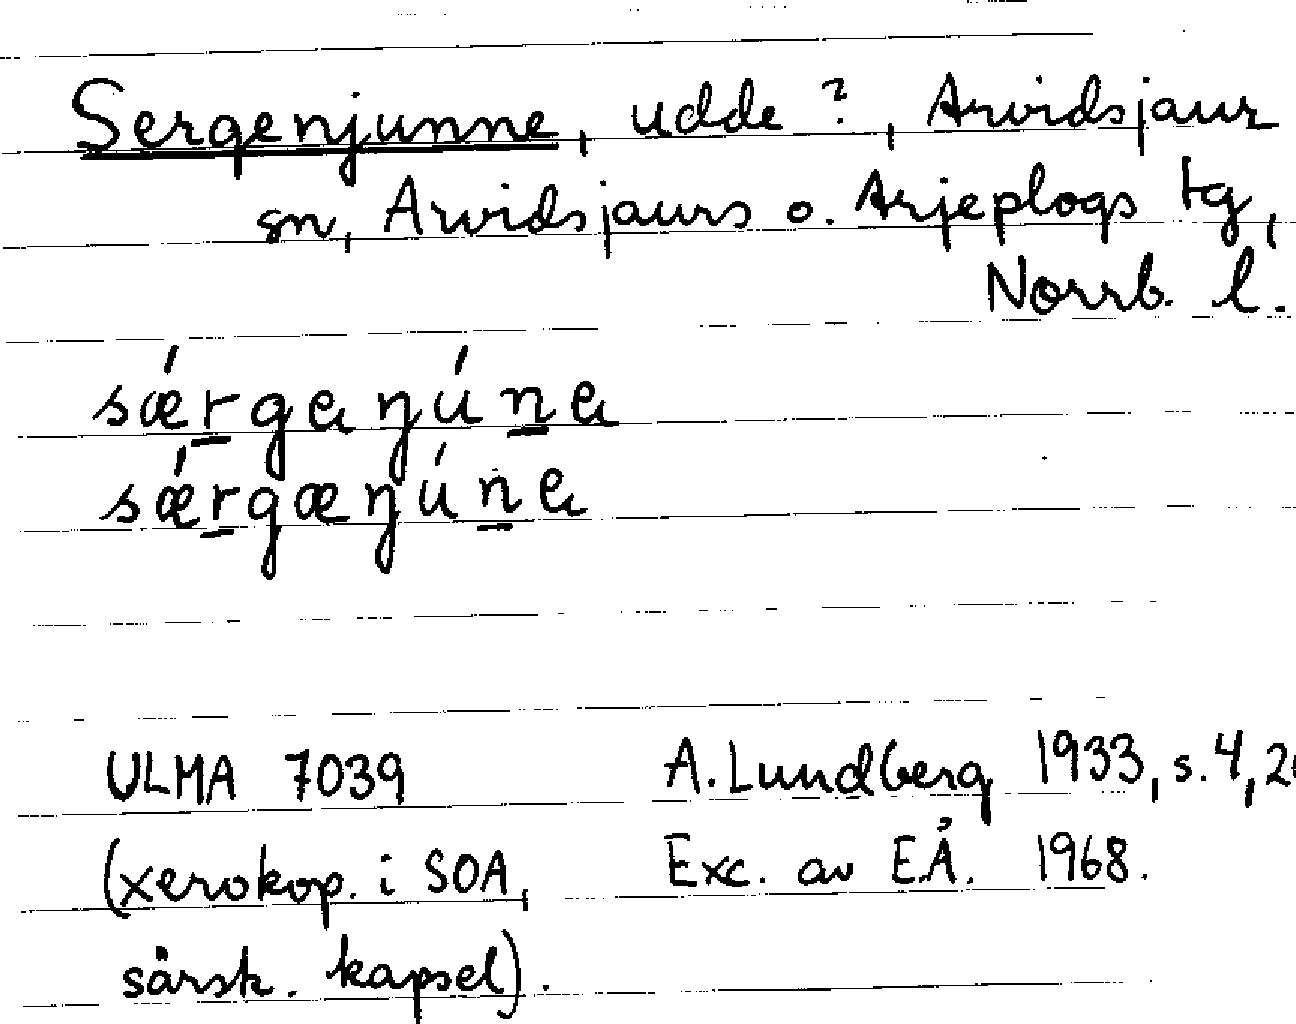 Sergenjunne, udde?, Arvidsjaur
sn, Arvidsjaurs o. Arjeplogs tg,
Norrb. l.
sǽr̲gaŋún̲a
sǽr̲gæŋún̲a
ULMA 7039 A. Lundberg 1933, s. 4,
(xerokop. i SOA, Exc. av EÅ. 1968.
särsk. kapsel).